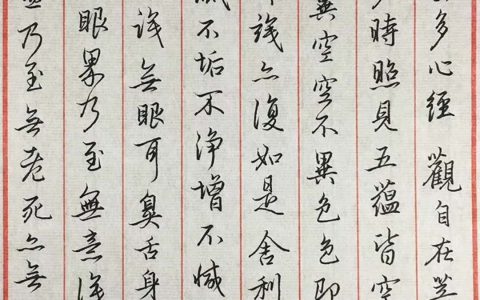 多心經 觀自在菩
時照見五蘊皆空
異空空不異色色即
識亦復如是舍利
不垢不淨增不減
識無眼耳鼻舌身
眼界乃至無意識
乃至無老死亦無